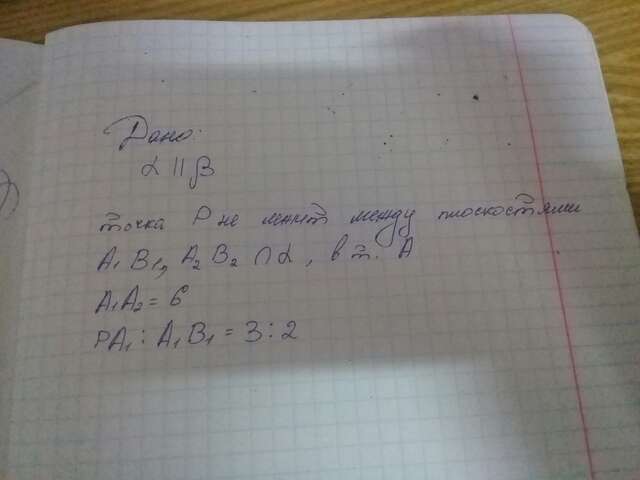 Дано:
α || β
точка P не лежит между плоскостями
A₁ B₁, A₂ B₂ ∩ α, в т. A
A₁A₂ = 6
PA₁ : A₁B₁ = 3 : 2